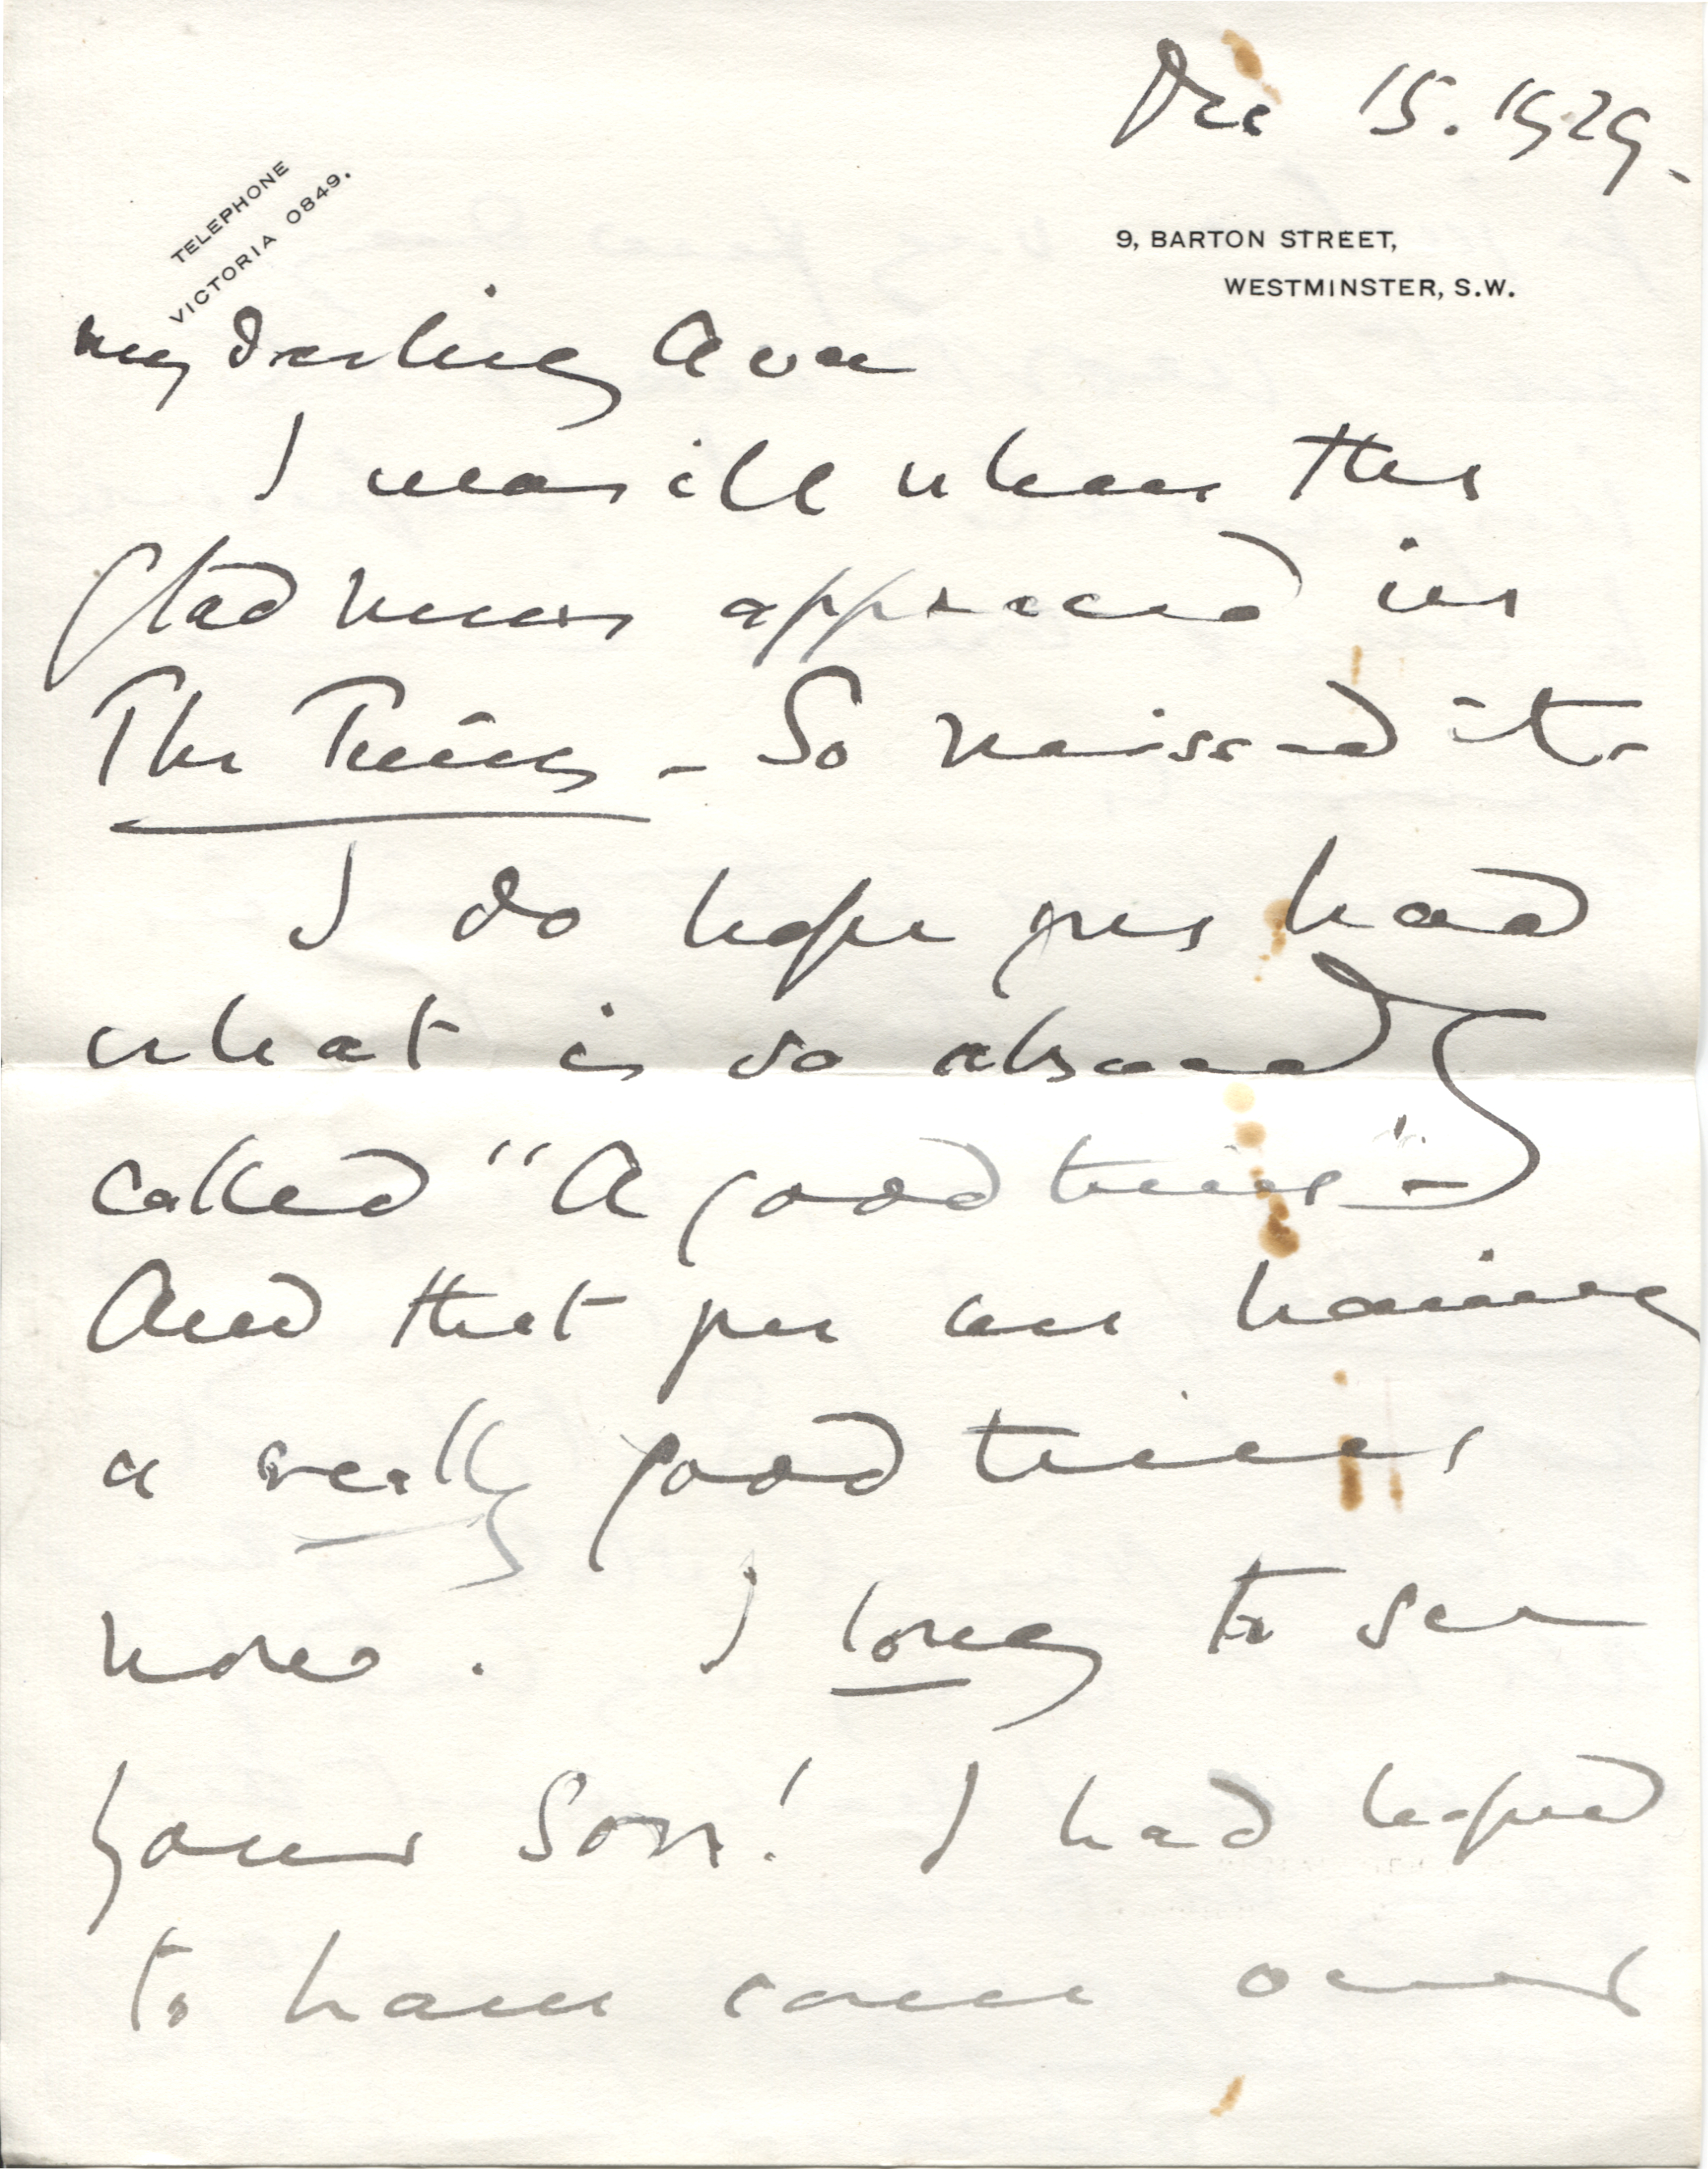 Dec 15. 1929.
TELEPHONE
VICTORIA 0849.
9, BARTON STREET,
WESTMINSTER, S.W.
my darling Ava
I was ill when the
glad news appeared in
The Times - So missed it -
I do hope you had
what is so absurdly
called "A good time" -
And that you are having
a really good time
now. I long to see
your Son! I had hoped
to have come over